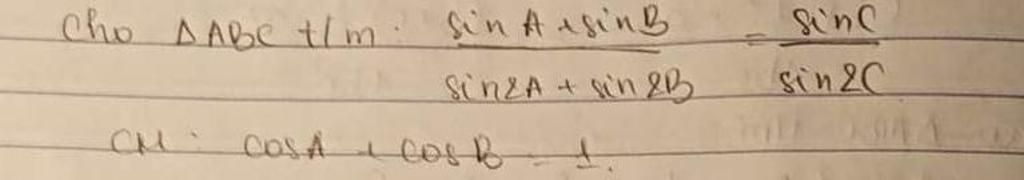 Cho ΔABC t/m: sinA + sinB / sin2A + sin2B = sinC / sin2C
CM: cosA + cosB = 1.